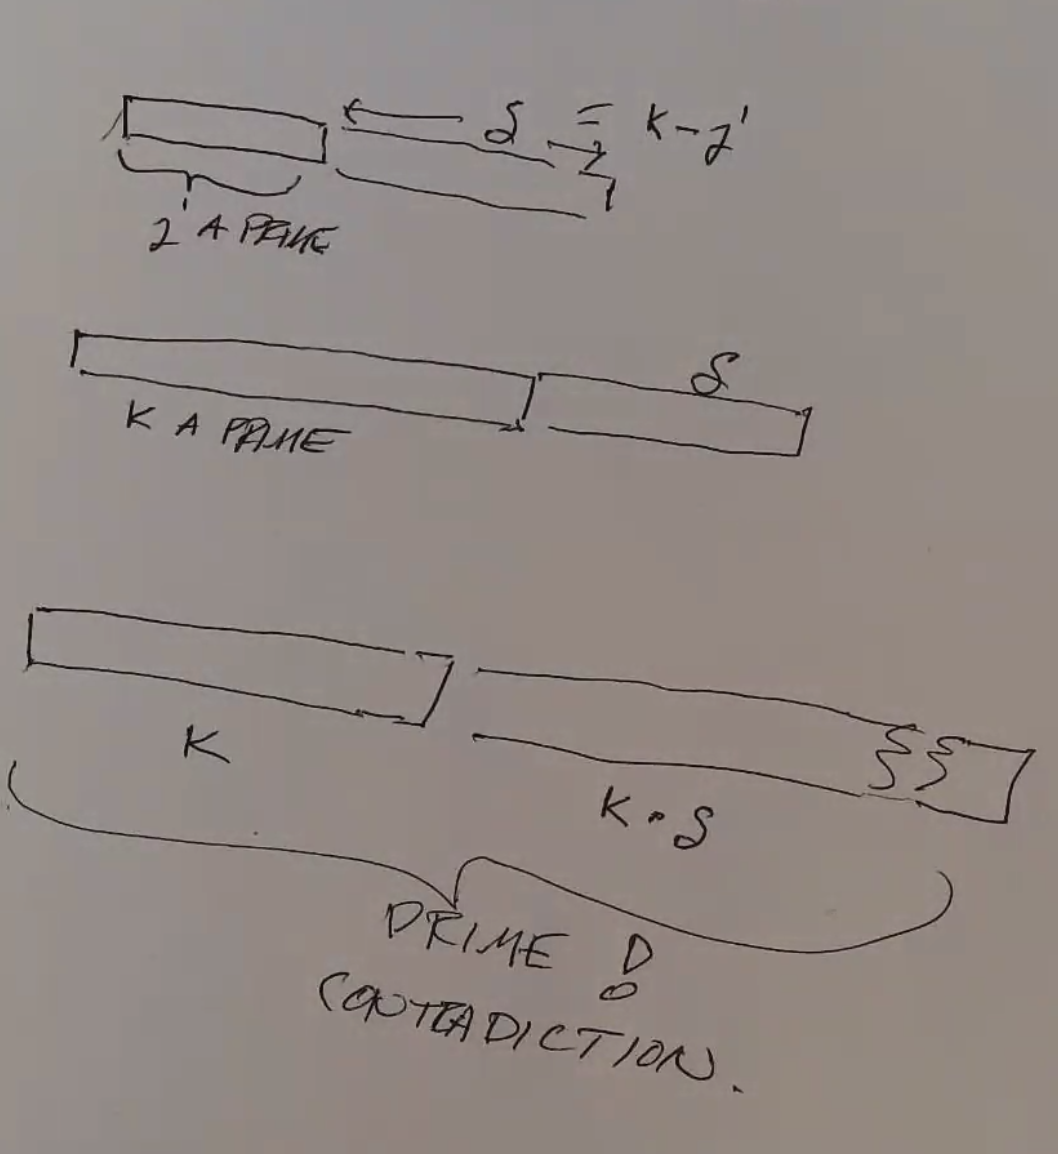 δ = K - j'
j' A PRIME
δ
K A PRIME
K
K · δ
PRIME !
CONTRADICTION.